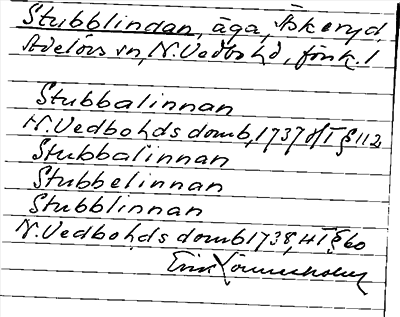 Stubblindan, äga, Askeryd
Adelövs sn, N.Vedbohd, Jönk.l
Stubbalinnan
N.Vedbohds domb, 1737 HT § 112
Stubbalinnan
Stubbelinnan
Stubblinnan
N.Vedbohds domb 1738, HT § 60
Erik